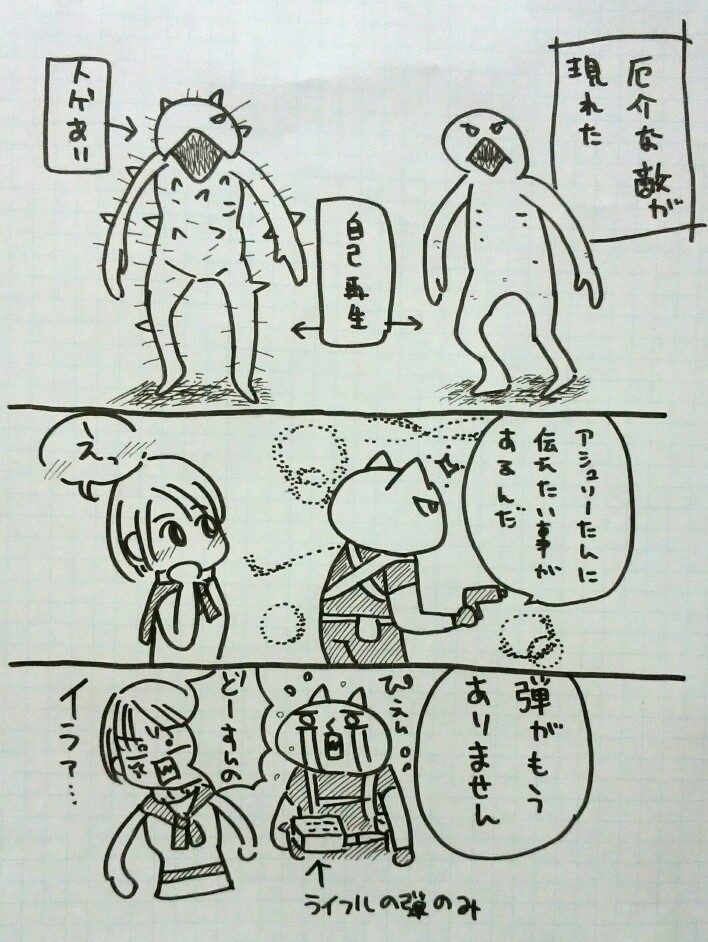 厄介な敵が
現れた
自己再生
トゲあり
アシュリーたんに
伝えたい事が
あるんだ
えっ…
弾がもう
ありません
ぴえん
どーすんの
イラァ…
ライフルの弾のみ